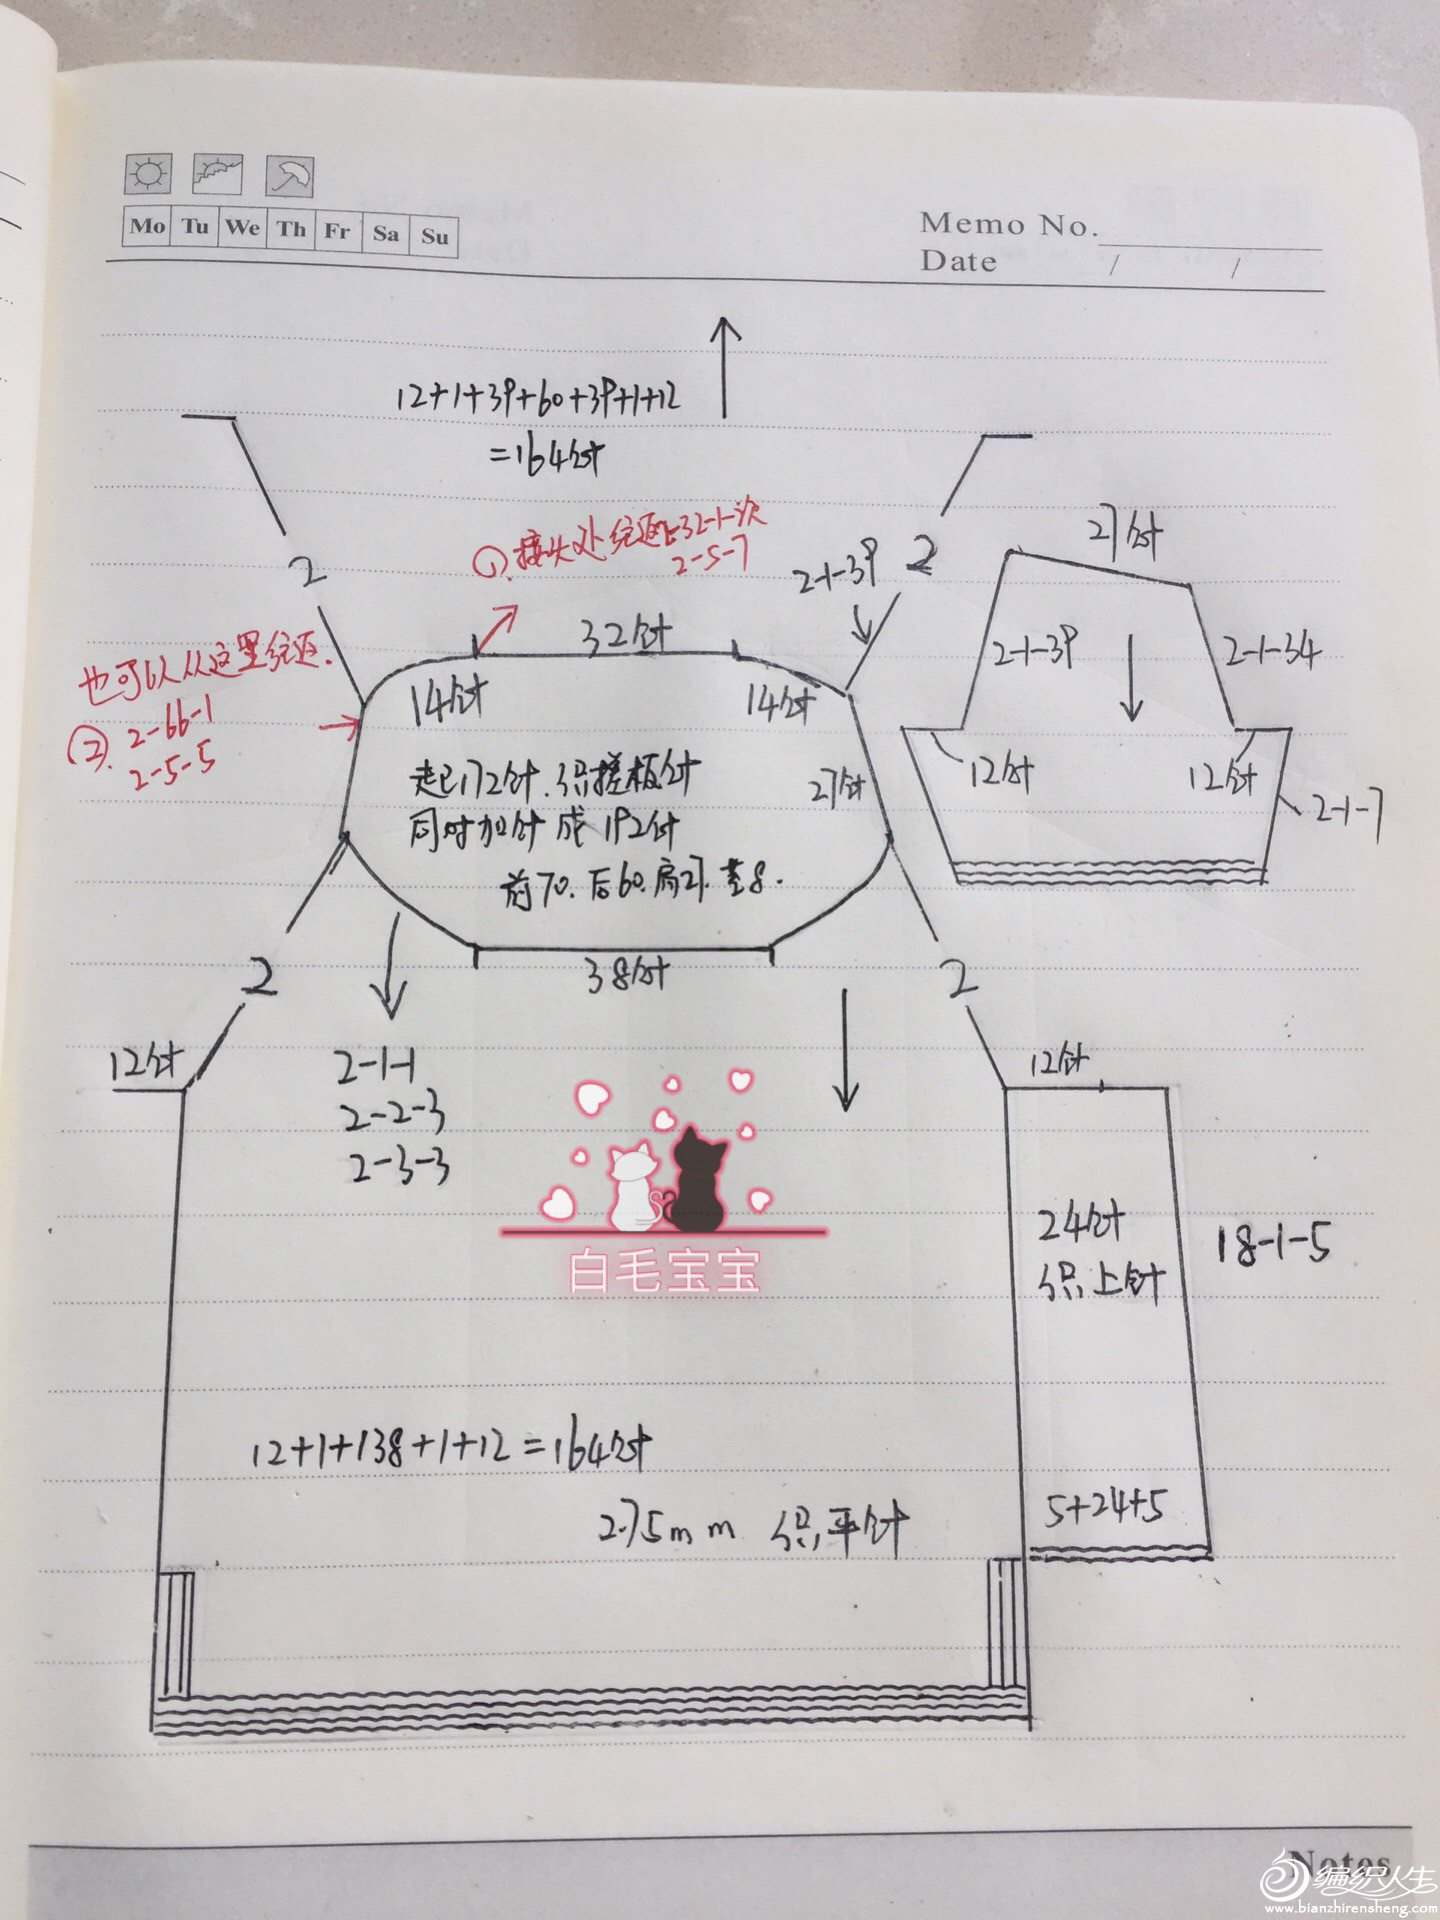 Mo Tu We Th Fr Sa Su
Memo No.
Date / /
12+1+39+60+39+1+12
=164针
①.接头处绕返32-1-次
2-5-7
2-1-39
2
2
27针
2-1-39
2-1-34
12针
12针
2-1-7
也可以从这里绕返.
②. 2-66-1
2-5-5
32针
14针
14针
27针
起172针.织搓板针
同时加针成192针
前70.后60.肩27.茎8.
38针
2
2
12针
12针
2-1-1
2-2-3
2-3-3
白毛宝宝
24针
织上针
18-1-5
12+1+138+1+12=164针
2.75mm 织平针
5+24+5
Notes
编织人生
www.bianzhirensheng.com